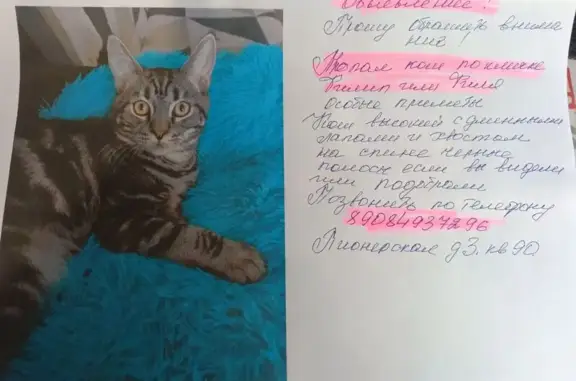 Объявление!
Прошу обратить внима
ние!
Пропал кот по кличке
Филип или Филя
особые приметы
Кот высокий с длинными
лапами и хвостом
на спине черные
полосы если вы видели
или подобрали
Позвонить по телефону
89084937296
Пионерская д3. кв 90